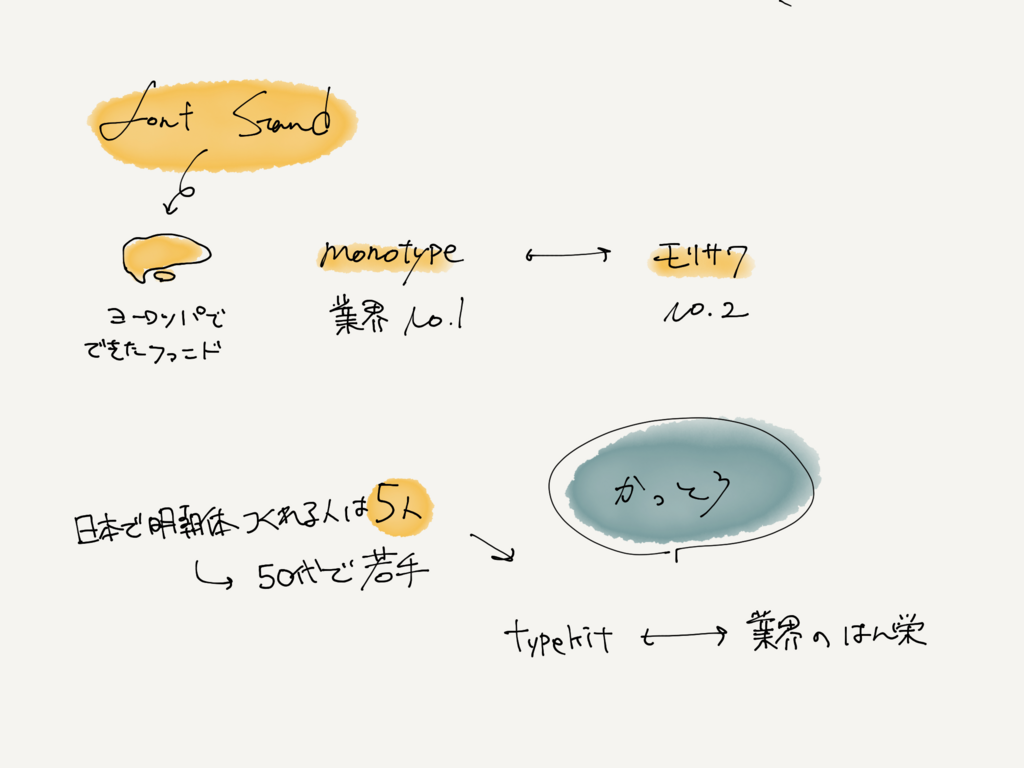 font stand
monotype
モリサワ
業界 No.1
No.2
ヨーロッパで
できたファンド
かっとう
日本で明朝体つくれる人は5人
50代で若手
typekit
業界のはん栄